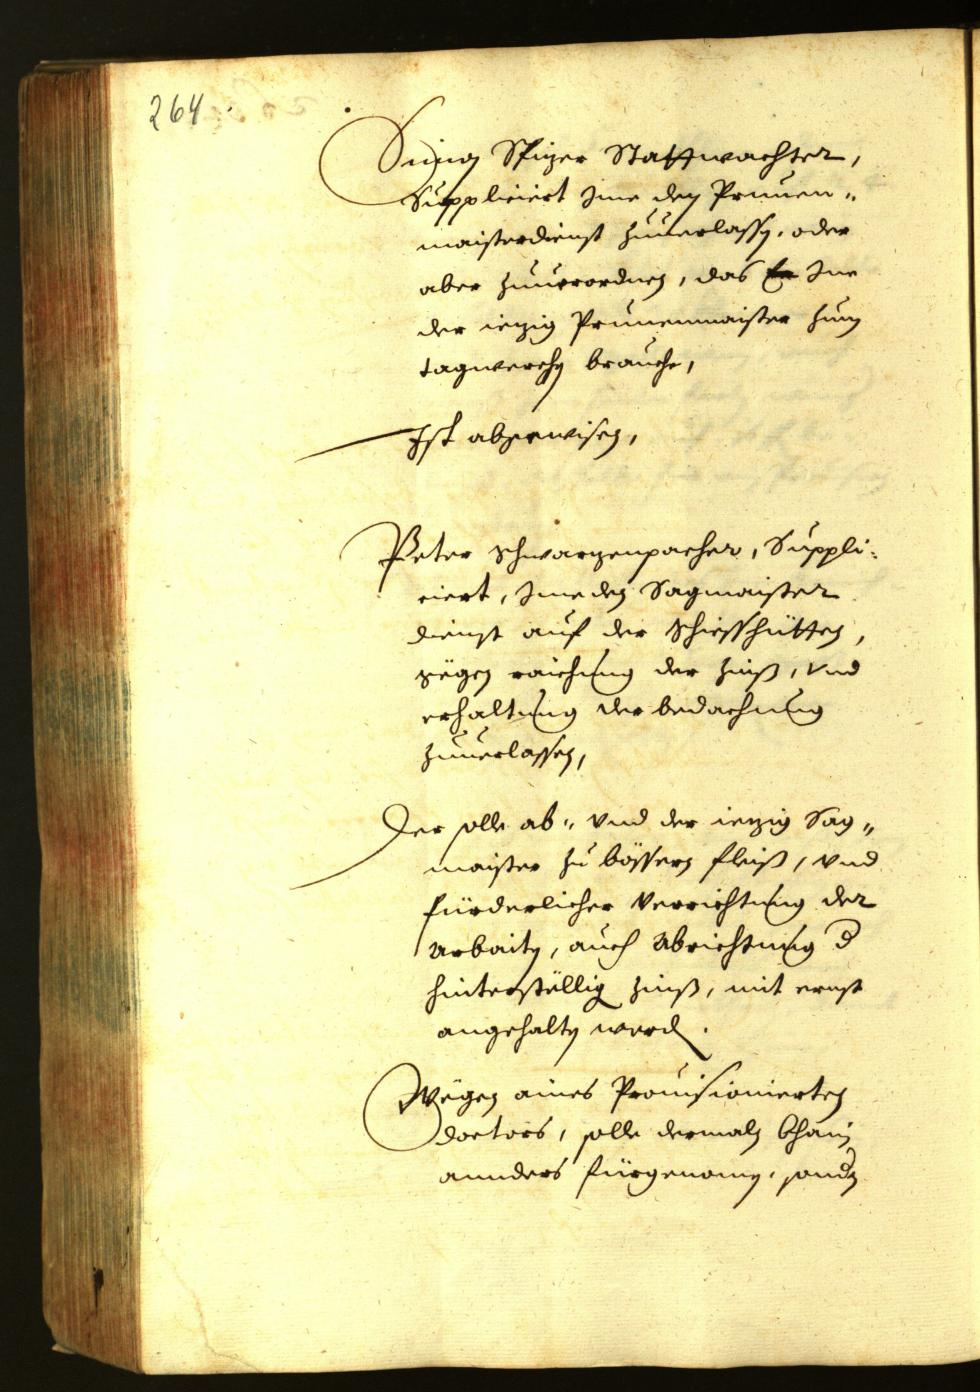 264
Simon Spizer Stattwachter,
Suppliciert Ime den Prunen-
maisterdienst zuuerlassen, oder
aber zuuerordnen, das Ime
der iezig Prunenmaister zum
tagwerchen brauche,
Ist abgewisen,
Peter Schwarzenpacher, Suppli-
ciert, Ime den Sagmaister
dienst auf der Schiesshütten,
gegen raichung der Zinß, Vnd
erhaltung der bedachung
zuuerlassen,
Der solle ab- vnd der iezig Sag-
maister zu bössern fleiß, vnd
fürderlicher Verrichtung der
Arbaiten, auch Abrichtung d
hinterstellig Zinß, mit ernst
angehalten werden.
Wegen aines Prouisionierten
doctors, solle dermaln khain
annders fürgenomen, sonder